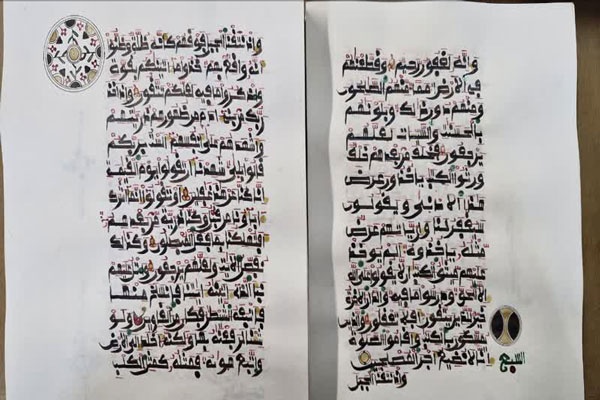 وإنه لغفور رحيم وقطعنهم
في الأرض أمما منهم الصلحون
ومنهم دون ذلك وبلونهم
بالحسنت والسيات لعلهم
يرجعون فخلف من بعدهم خلف
ورثوا الكتب ياخذون عرض
هذا الأدنى ويقولون
سيغفر لنا وإن ياتهم عرض
مثله ياخذوه ألم يوخذ
عليهم ميثق الكتب ألا يقولوا على الله
إلا الحق ودرسوا ما فيه والدار الأخرة
خير للذين يتقون أفلا تعقلون والذين
يمسكون بالكتب وأقاموا الصلوة
إنا لا نضيع أجر المصلحين
السبع
وإذ نتقنا الجبل
وإذ نتقنا الجبل فوقهم كأنه ظلة وظنوا
أنه واقع بهم خذوا ما ءاتينكم بقوة
واذكروا ما فيه لعلكم تتقون وإذ أخذ
ربك من بني ءادم من ظهورهم ذريتهم
وأشهدهم على أنفسهم ألست بربكم
قالوا بلى شهدنا أن تقولوا يوم القيمة
إنا كنا عن هذا غفلين أو تقولوا إنما أشرك
ءاباؤنا من قبل وكنا ذرية من بعدهم
أفتهلكنا بما فعل المبطلون وكذلك
نفصل الأيت ولعلهم يرجعون واتل عليهم
نبأ الذي ءاتينه ءايتنا فانسلخ منها
فأتبعه الشيطن فكان من الغاوين ولو
شئنا لرفعنه بها ولكنه أخلد إلى الأرض
واتبع هويه فمثله كمثل الكلب